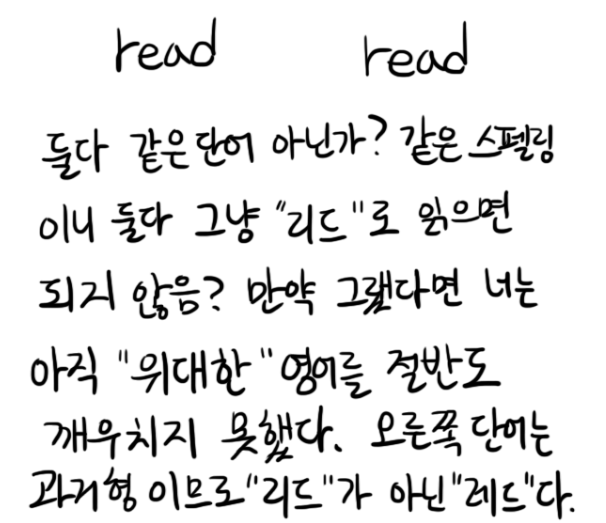 read read
둘다 같은단어 아닌가? 같은 스펠링
이니 둘다 그냥 "리드"로 읽으면
되지 않음? 만약 그랬다면 너는
아직 "위대한" 영어를 절반도
깨우치지 못했다. 오른쪽 단어는
과거형이므로 "리드"가 아닌 "레드"다.